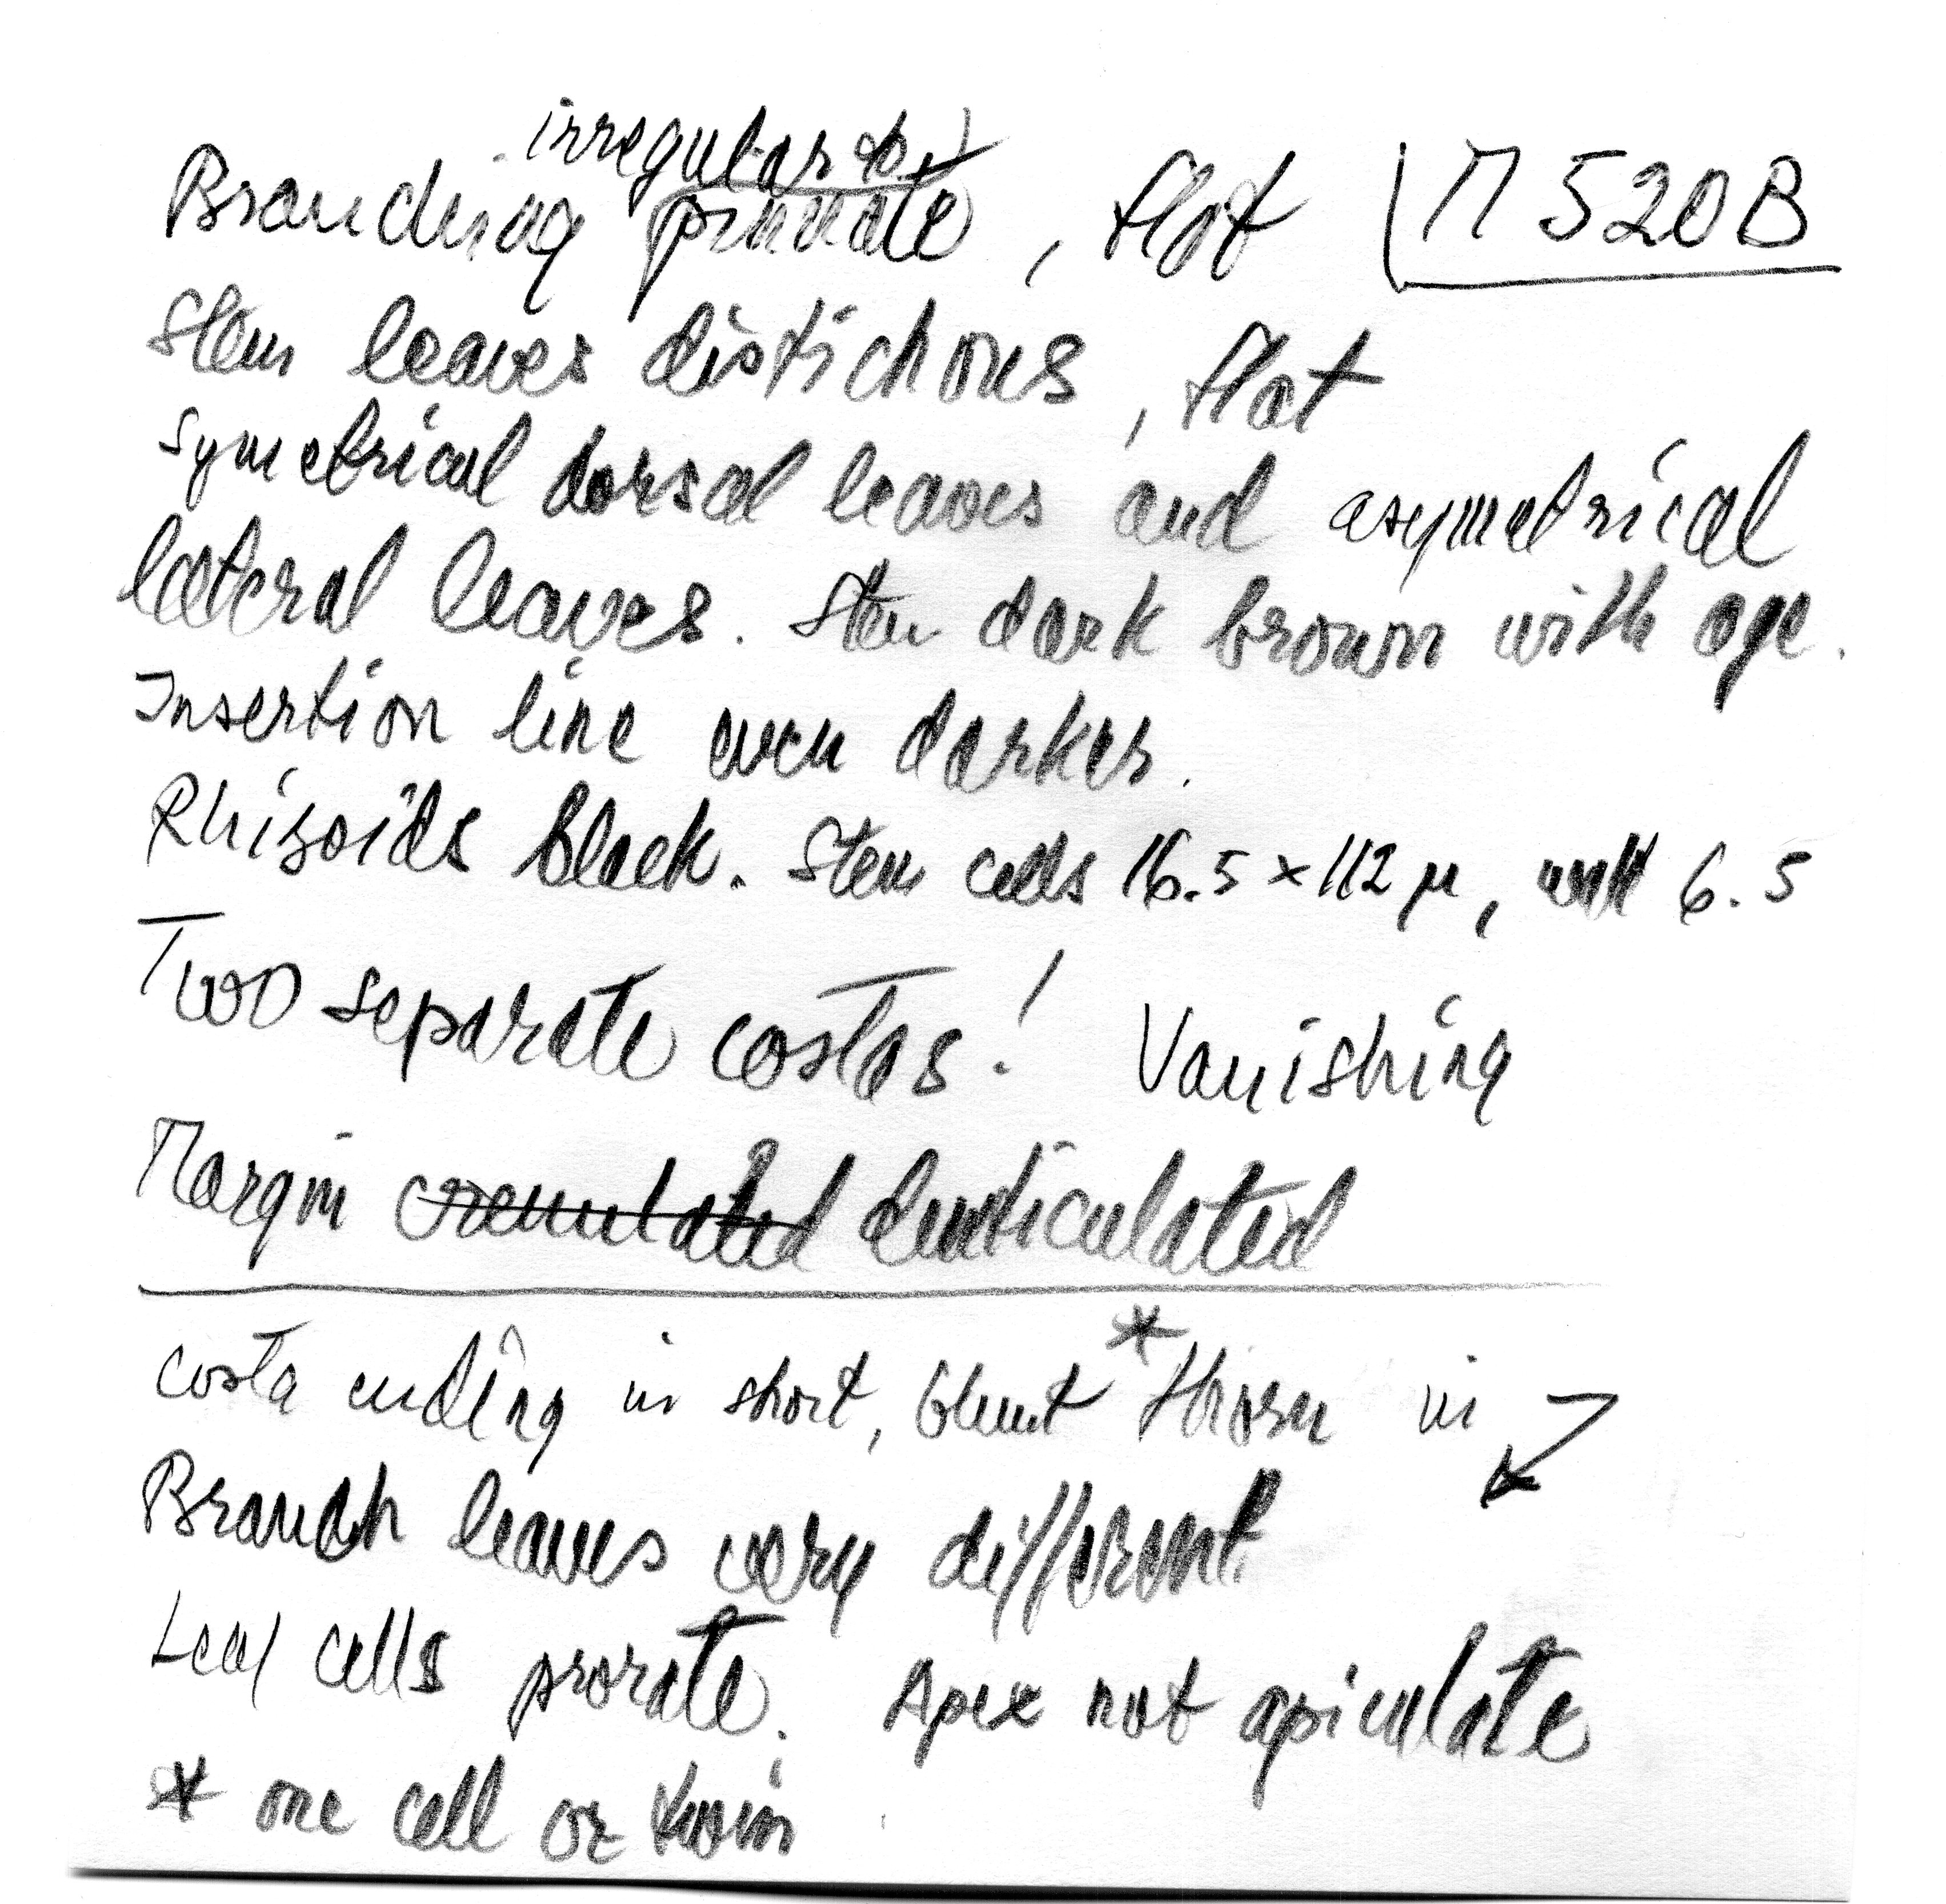 irregular to
Branching pinnate, flat M 520B
Stem leaves distichous, flat
Symetrical dorsal leaves and asymetrical
lateral leaves. Stem dark brown with age.
Insertion line even darker.
Rhizoids black. Stem cells 16.5 × 112 µ, wall 6.5
Two separate costas! Vanishing
Margin crenulated denticulated
costa ending in short, blunt * thorn in
Branch leaves very different
Leaf cells prorate. Apex not apiculate
* one cell or twin